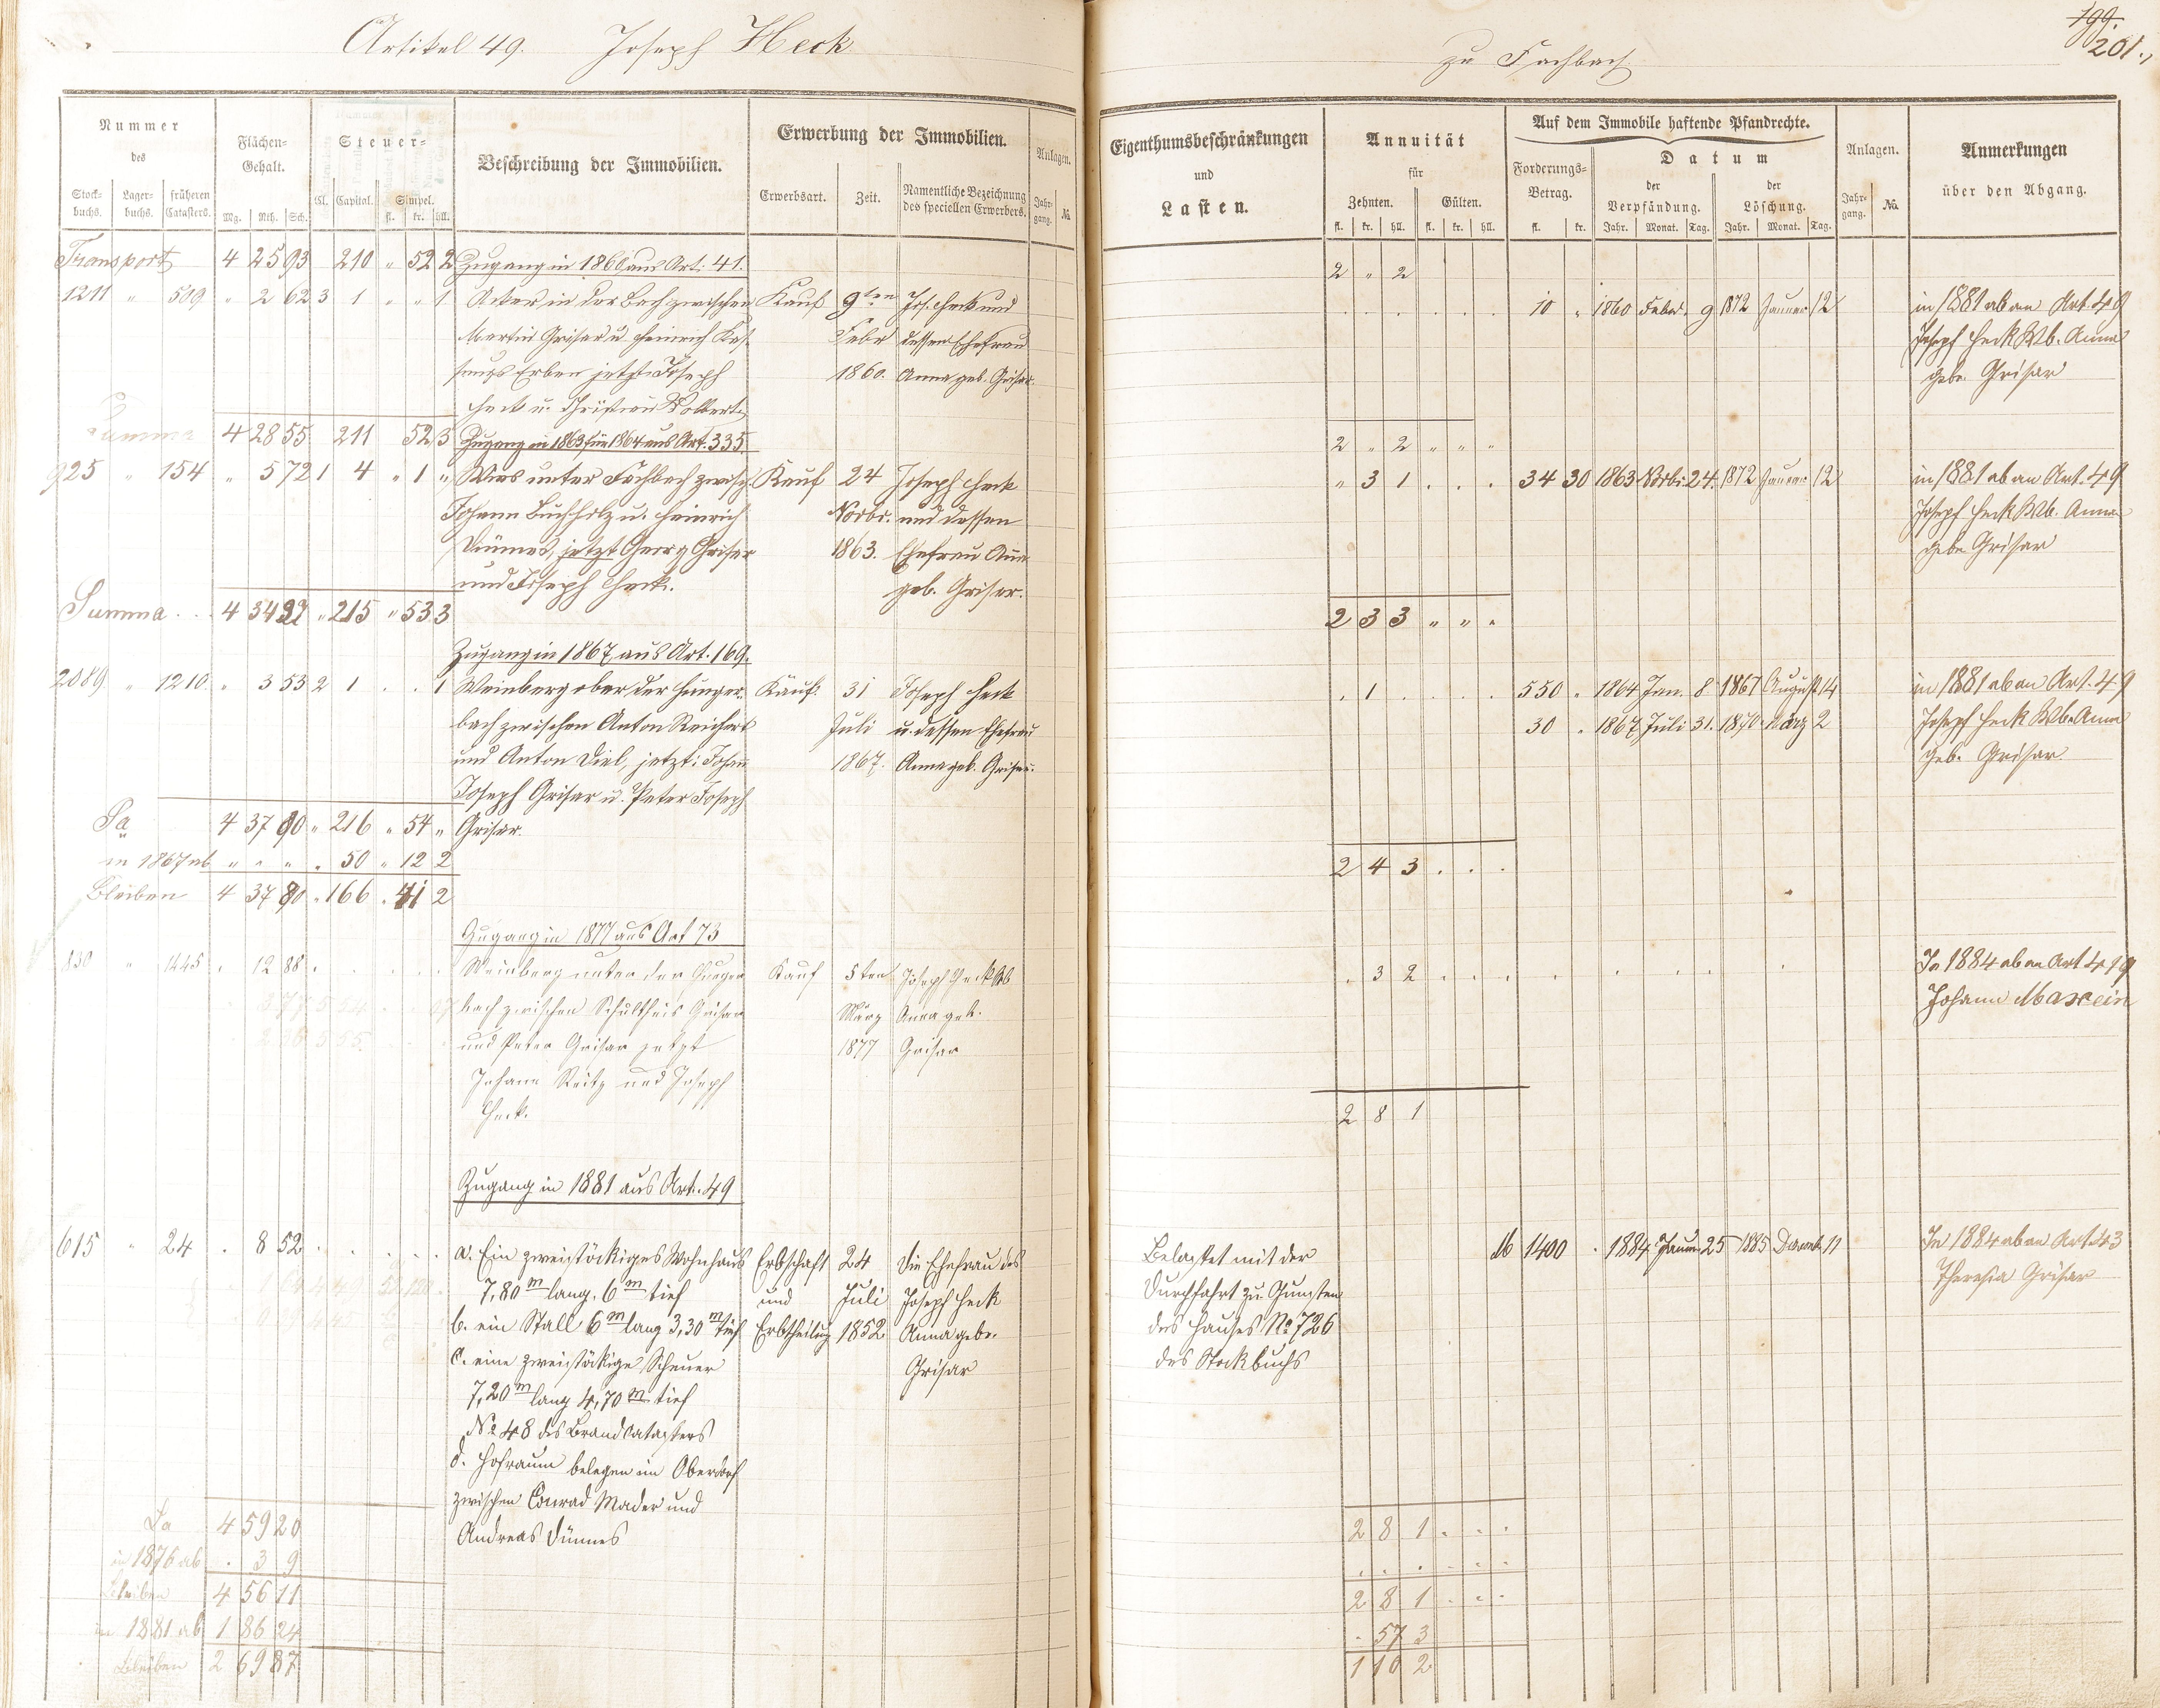 Artikel 49. Joseph Heck
zu Fachbach
199.
201.
Nummer des
Stockbuchs. Lagerbuchs. früheren Catasters.
Flächen-Gehalt.
Mg. Rth. Sch.
Steuer-
Cl. Capital. Simpel.
fl. kr. hll.
Beschreibung der Immobilien.
Erwerbung der Immobilien.
Erwerbsart. Zeit. Namentliche Bezeichnung des speciellen Erwerbers.
Anlagen.
Jahrgang. No.
Eigenthumsbeschränkungen
und
Lasten.
Annuität
für
Zehnten. Gülten.
fl. kr. hll. fl. kr. hll.
Auf dem Immobile haftende Pfandrechte.
Forderungs-Betrag.
fl. kr.
Datum
der Verpfändung. der Löschung.
Jahr. Monat. Tag. Jahr. Monat. Tag.
Anlagen.
Jahrgang. No.
Anmerkungen
über den Abgang.
Transport 4 25 93 210 " 52 2 Zugang in 1860 aus Art: 41. 2 " 2
1211 " 509 " 2 62 3 1 " " 1 Acker in der Bach zwischen Kauf 9ten Jos. Heck und 10 " 1860 Febr. 9 1872 Januar 12 in 1881 ab an Art. 49
Martin Grisar u Heinrich Kas- Febr dessen Ehefrau Joseph Heck Wb. Anna
sungs Erben jetzt: Joseph 1860. Anna geb. Grisar. gebe. Grisar
Heck u. Christian Wolbert.
Summa 4 28 55 211 52 3 Zugang in 1863 für 1864 aus Art. 335. 2 " 2 " " "
925 " 154 " 5 72 1 4 " 1 " Wies unter Fachbach zwisch Kauf 24 Joseph Heck " 3 1 . . . 34 30 1863 Novbr. 24. 1872 Januar 12 in 1881 ab an Art. 49
Johann Buchholz u. Heinrich Novbr. und dessen Joseph Heck Wb. Anna
Dünnes, jetzt Georg Grisar 1863. Ehefrau Anna gebe Grisar
und Joseph Heck. geb. Grisar.
Summa . . 4 34 27 " 215 " 53 3 2 3 3 " " "
Zugang in 1867 aus Art. 169.
2089 " 1210 " 3 53 2 1 . . 1 Weinberg ober der Hunger- Kauf. 31 Joseph Heck . 1 . . . . 550 " 1864 Jan. 8 1867 August 14 in 1881 ab an Art. 49
bach zwischen Anton Reichert Juli u. dessen Ehefrau 30 " 1867 Juli 31. 1870 März 2 Joseph Heck Wb. Anna
und Anton Diel, jetzt: Johann 1867. Anna geb. Grisar. geb. Grisar
Joseph Grisar u. Peter Joseph
Sa 4 37 80 " 216 " 54 " Grisar.
in 1867 ab " " " . 50 " 12 2 2 4 3 . . .
Bleiben 4 37 80 " 166 . 41 2
Zugang in 1877 aus Art 73
830 " 1445 . 12 88 . . . . . Weinberg unter der Hunger Kauf 5ten Joseph Heck Wb . 3 2 . . . In 1884 ab an Art 419
bach zwischen Schultheis Grisar März Anna geb. Johann Maxein
und Peter Grisar jetzt 1877 Grisar
Johann Reitz und Joseph
Heck. 2 8 1
Zugang in 1881 aus Art. 49
615 " 24 . 8 52 . . . . . a. Ein zweistöckiges Wohnhaus Erbschaft 24 Die Ehefrau des Belastet mit der M 1400 . 1884 Januar 25 1885 Decemb 11 In 1884 ab an Art. 43
7,80 m lang. 6 m tief und Juli Joseph Heck Durchfahrt zu Gunsten Theresia Grisar
b. ein Stall 6 m lang 3,30 m tief Erbtheilung 1852 Anna gebe. des Hauses No 726
c. eine zweistökige Scheuer Grisar des Stockbuchs
7,20 m lang 4,70 m tief
No 48 des Brandcatasters
d. Hofraum belegen im Oberdorf
zwischen Conrad Mader und
Sa 4 59 20 Andreas Dünnes 2 8 1 . . .
in 1876 ab . 3 9 . . . . . .
Bleiben 4 56 11 2 8 1 . . .
in 1881 ab 1 86 24 . 57 3
Bleiben 2 69 87 1 10 2